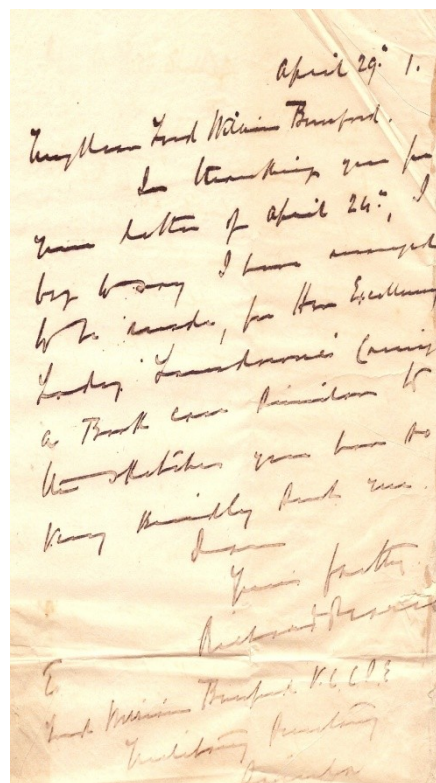 April 29th 1.
My dear Lord William Beresford.
In thanking you for
your letter of April 24th, I
beg to say I have arranged
to be made, for Her Excellency
Lady Lansdowne's
a Book case similar to
the sketches you have so
very kindly sent me.
I am
Yours faithy.
Richard
To
Lord William Beresford V.C. C.I.E
Military Secretary